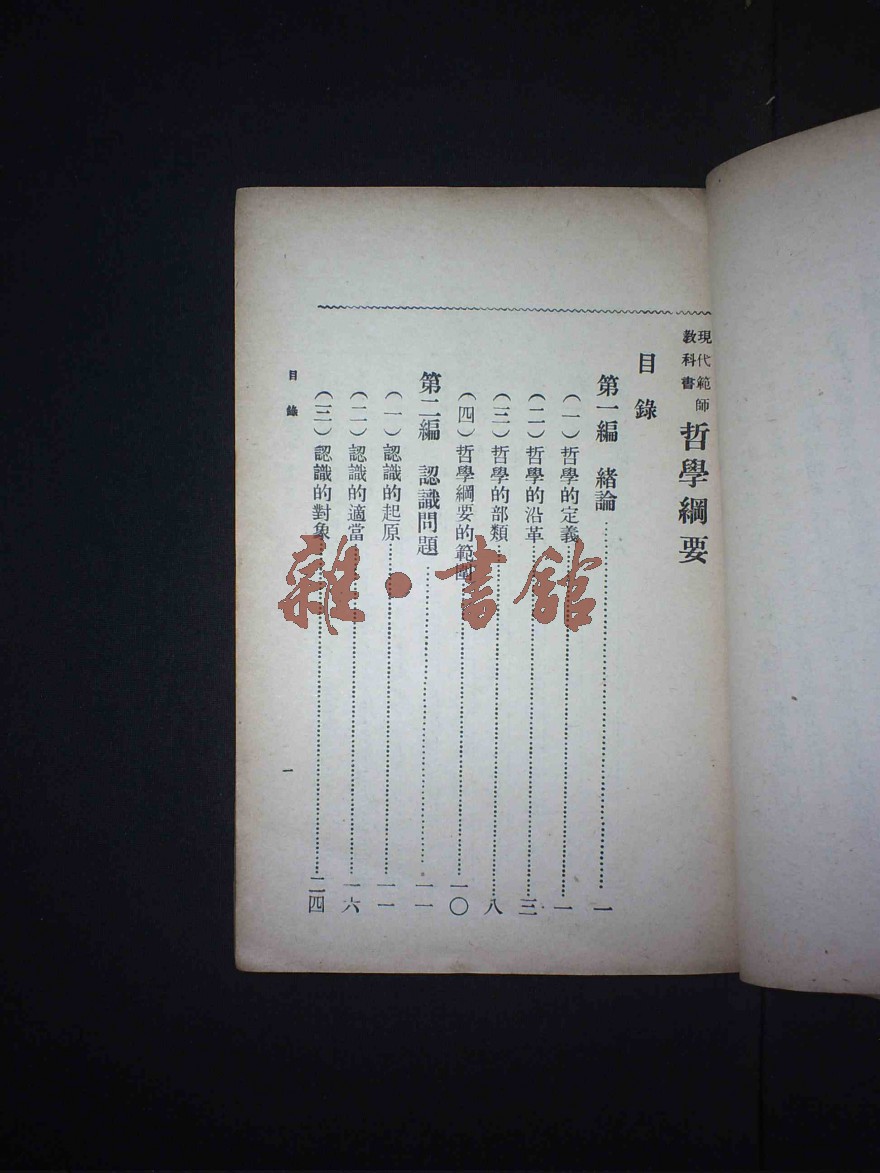 現代範師
教科書
哲學綱要
目錄
第一編 緒論……一
(一)哲學的定義……一
(二)哲學的沿革……三
(三)哲學的部類……八
(四)哲學綱要的範圍……一〇
第二編 認識問題……一一
(一)認識的起原……一一
(二)認識的適當……一六
(三)認識的對象……二四
目錄
一
雜·書館